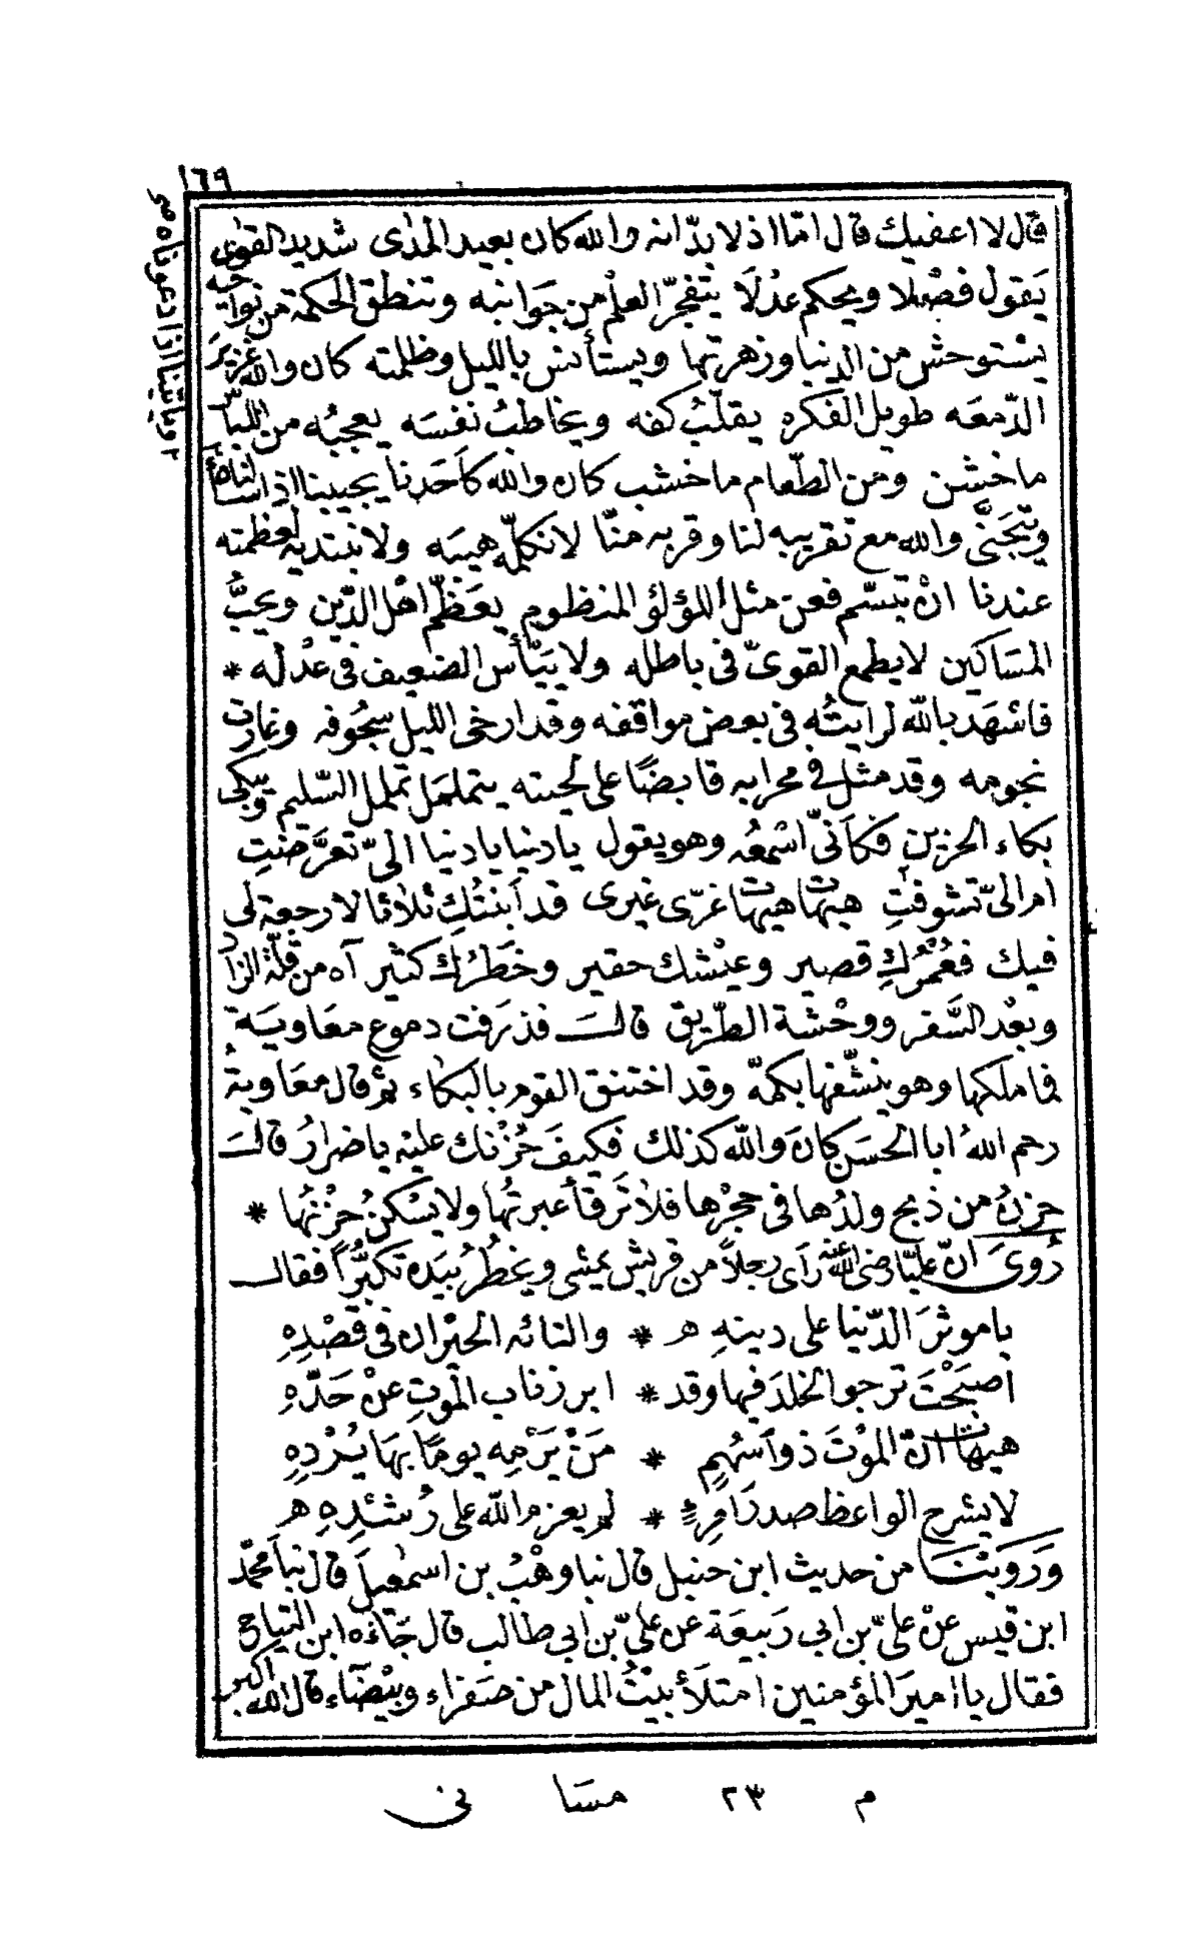 ١٦٩
قال لا اعفيك قال امّا اذ لا بدّ انه والله كان بعيد المدٰى شديد القوٰى
يَقول فصْلا ويحكم عدْلًا يتفجّر العلْم من جَوانبه وتنطق الحكمة من نواحيه
يسْتوحش من الدنيا وزهرتها ويستأنس بالليل وظلمته كان والله غزيرَ
الدّمعَه طويل الفكره يقلّبُ كفه ويخاطبُ نفسَه يعجبُه من اللباس
ما خشن ومن الطّعام ما خشب كان والله كاَحَدنا يجيبنا اذا سألناه
ويأتينا اذا دعوناه صح
ونحنُ والله مع تقريبه لنا وقربه منّا لا نكلّمه هيبَه ولا نبتديه لعظمته
عندنا انْ تبسّم فعن مثل اللؤلؤ المنظوم يعَظّم اهْل الدّين ويحبُّ
المسَاكين لا يطمع القوىّ فى باطله ولا ييَأس الضعيف فى عدْله *
فاشهَد بالله لرايتُه فى بعض مواقفه وقد ارخى الليل سجُوفه وغارت
نجومه وقد مثل فى محرابه قابضًا على لحيته يتململ تململ السّليم ويبكى
بكاء الحزين فكاَنىّ اسْمعُه وهو يقول يا دنيا يا دنيا الىّ تعرَّضتِ
ام الىّ تشوفتِ هيهات هيهات غرّى غيرى قد اَبنتُكِ ثلاثا لا رجعة لى
فيك فعُمْرُكِ قصير وعيْشك حقير وخَطرُك كثير آه من قلّة الزاد
وبعْد السَّفر ووحْشة الطّريق قالَ فذرَفت دموع معَاويَة
فما ملكها وهو ينشّفها بكمّه وقد اختنق القوم بالبكاء ثم قال معَاويةُ
رحم اللهُ ابا الحسَن كانَ والله كذلك فكيفَ حُزْنك عليْه يا ضرارُ قالَ
حزنُ من ذبح ولدُها فى حجْرها فلا تَرقأ عبرتُها ولا يسْكنُ حُزْنُها *
رُوىَ انّ عليّا رضى الله عنه رَأى رجلاً من قريش يمشى ويخطُرُ بيَده تكبُّراً فقال
يا موثرَ الدّنيا على دينهِ ھ * والتائه الحيْران فى قصْدِهِ
اصبَحْتَ ترجو الخلدَ فيها وقد * ابرز ناب الموتِ عنْ حَدّهِ
هيهات انّ الموْتَ ذو اَسْهُمٍ * مَنْ يَرْمِه يومًا بهَا يُرْدِهِ
لا يشرح الواعظ صدرَ امرِئٍ * لم يعزم الله على رُشْدِهِ ھ
وَرَويْنَا من حديث ابن حنبل قال نبا وهْبُ بن اسمٰعيلَ قال نباَ محمّد
ابن قيس عنْ علىّ بن ابي رَبيعَة عن علىّ بن ابي طالب قال جَاءَه ابن التياح
فقال يا اميرَ المؤمنين امتلَأ بيْتُ المال من صَفراء وبيْضَآء قال الله اكبر
م ٢٣ مسَا نى